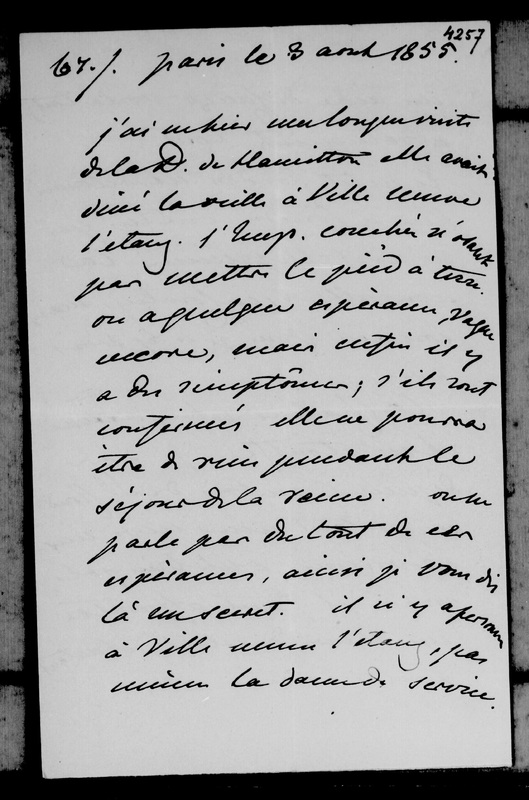 4257
67./. paris le 3 aout 1855.
j'ai eu hier une longue visite
de la D. de Hamilton elle avait
diné la veille à Ville neuve
l'étang. l'Imp. couchée n'osant
pas mettre le pied à terre.
on a quelque espérance, vague
encore, mais enfin il y
a des simptômes; s'ils sont
confirmés elle ne pourra
être de rien pendant le
séjour de la reine. on ne
parle pas du tout de ces
espérances, ainsi je vous dis
là un secret. il n'y a personne
à Ville neuve l'étang, pas
même la dame de service.